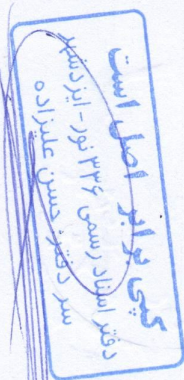 کپی برابر اصل است
دفتر اسناد رسمی ۳۳۶ نور - ایزدشهر
سر دفتر: حسن علیزاده